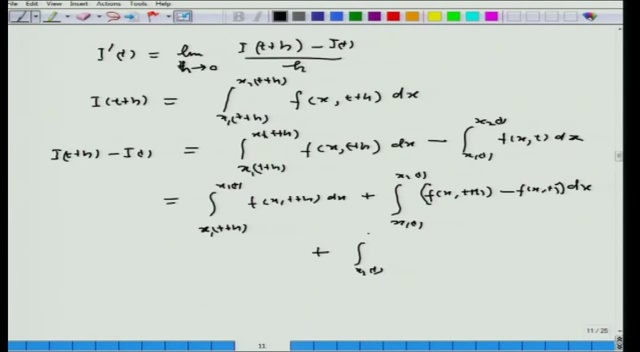 File Edit View Insert Actions Tools Help
I'(t) = lim h→0 (I(t+h) − I(t))/h
I(t+h) = ∫_{x₁(t+h)}^{x₂(t+h)} f(x, t+h) dx
I(t+h) − I(t) = ∫_{x₁(t+h)}^{x₂(t+h)} f(x, t+h) dx − ∫_{x₁(t)}^{x₂(t)} f(x, t) dx
= ∫_{x₁(t+h)}^{x₁(t)} f(x, t+h) dx + ∫_{x₁(t)}^{x₂(t)} (f(x, t+h) − f(x, t)) dx
+ ∫_{x₂(t)}
11 / 25
11